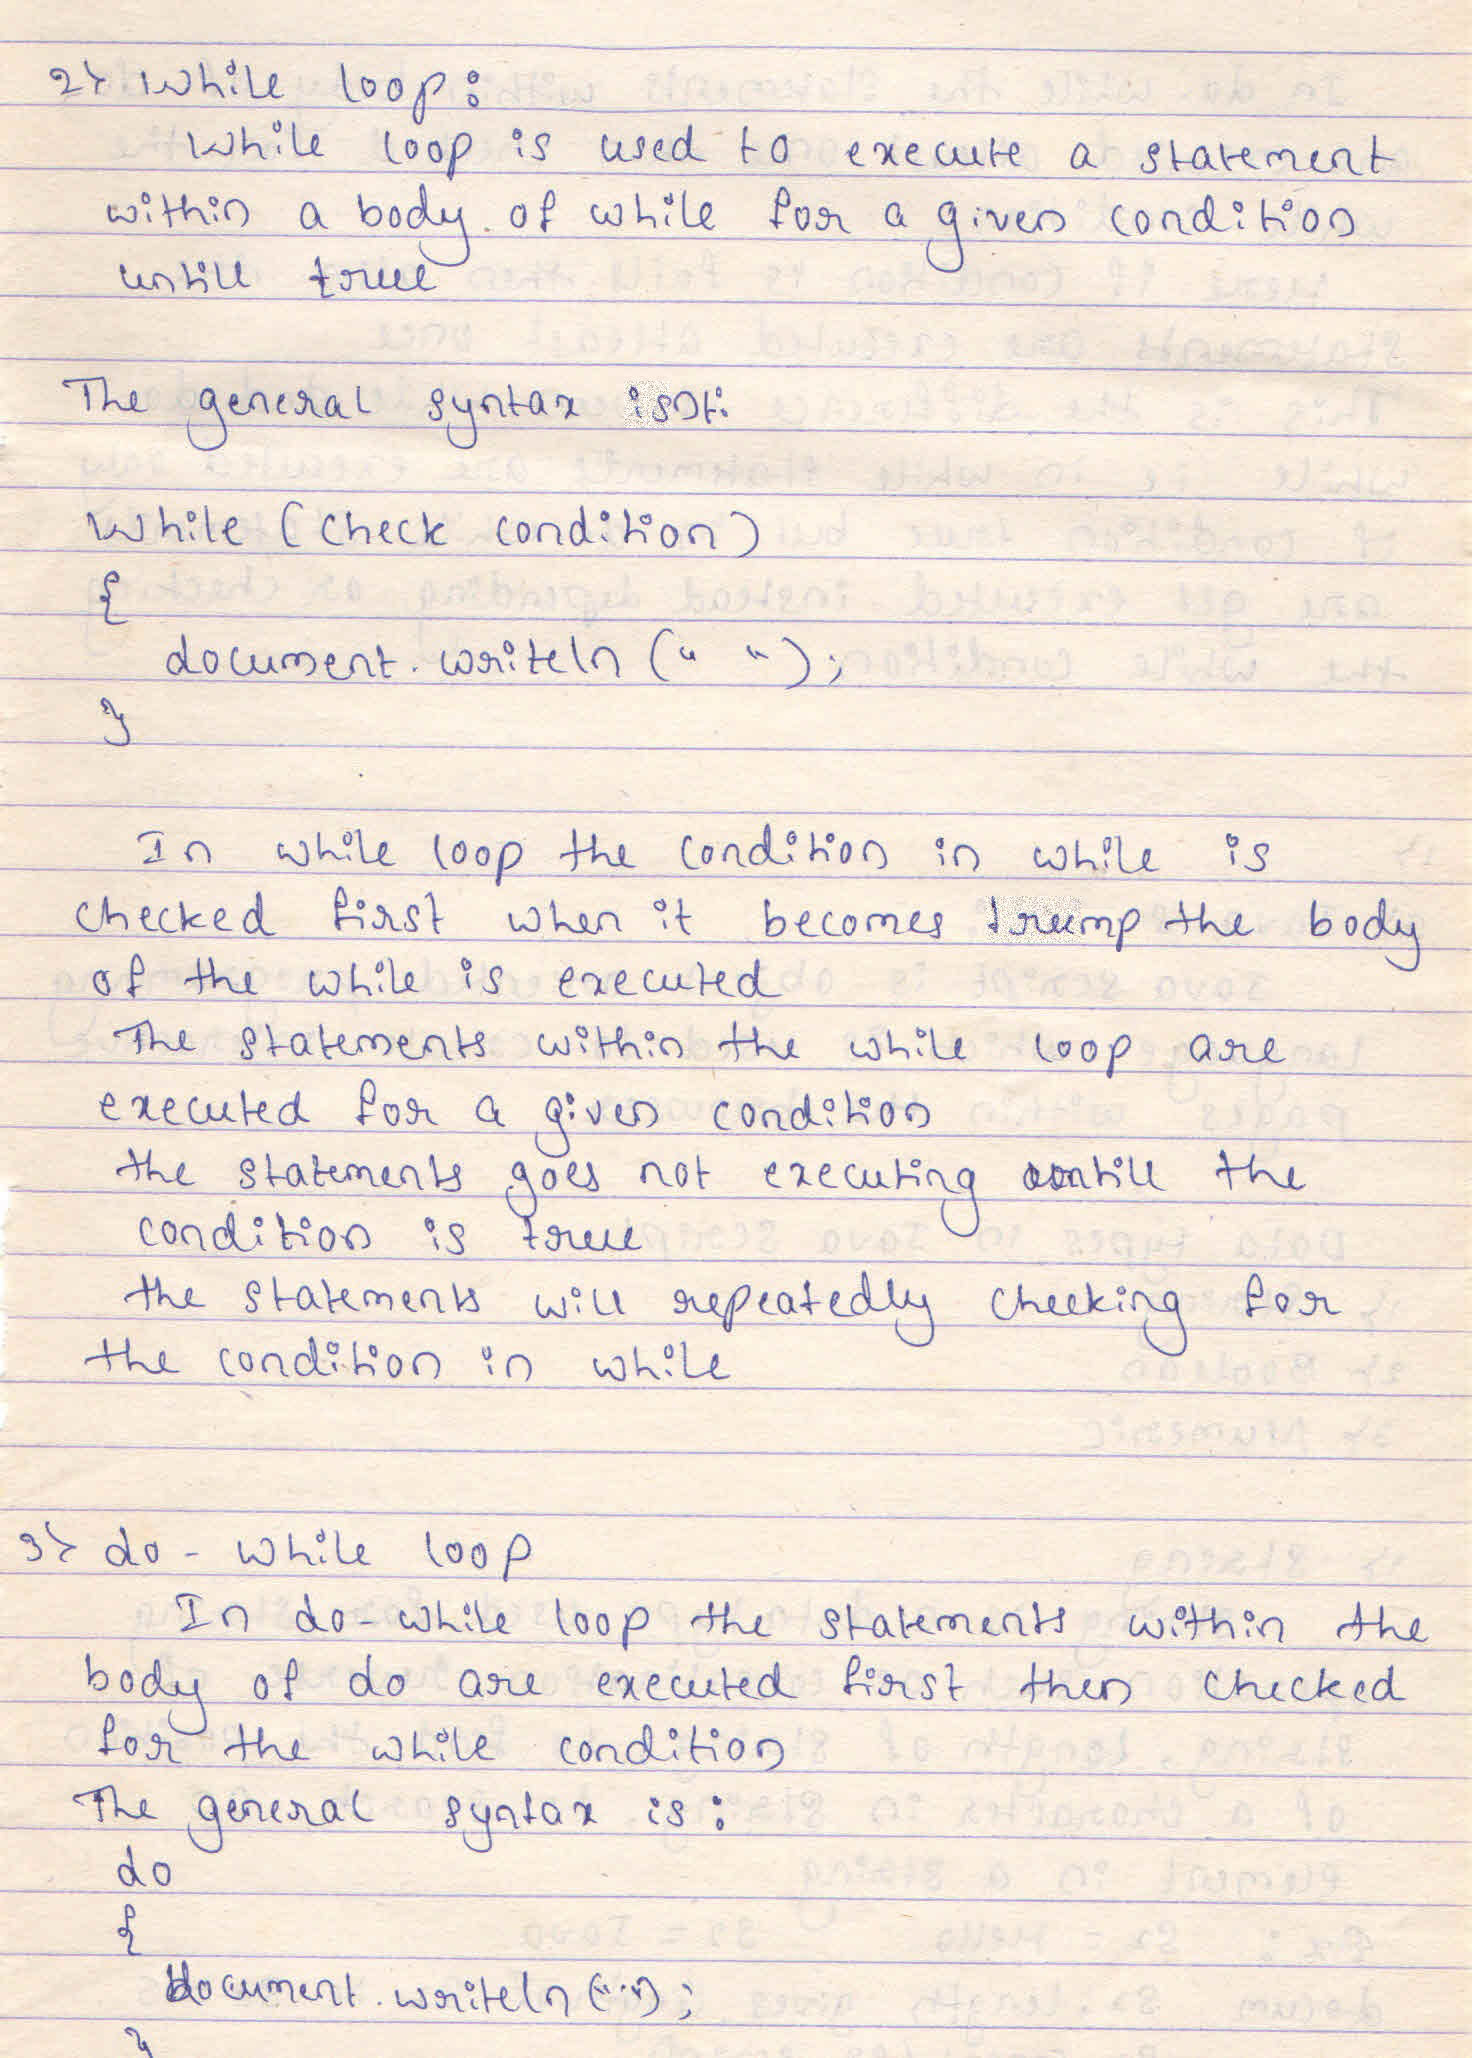 2> While loop:
While loop is used to execute a statement
within a body of while for a given condition
untill true
The general syntax is
While (check condition)
{
document.writeln (" ");
}
In while loop the condition in while is
checked first when it becomes trump the body
of the while is executed
The statements within the while loop are
executed for a given condition
the statements goes not executing untill the
condition is true
the statements will repeatedly checking for
the condition in while
3> do - while loop
In do-while loop the statements within the
body of do are executed first then checked
for the while condition
The general syntax is:
do
{
document.writeln("");
}